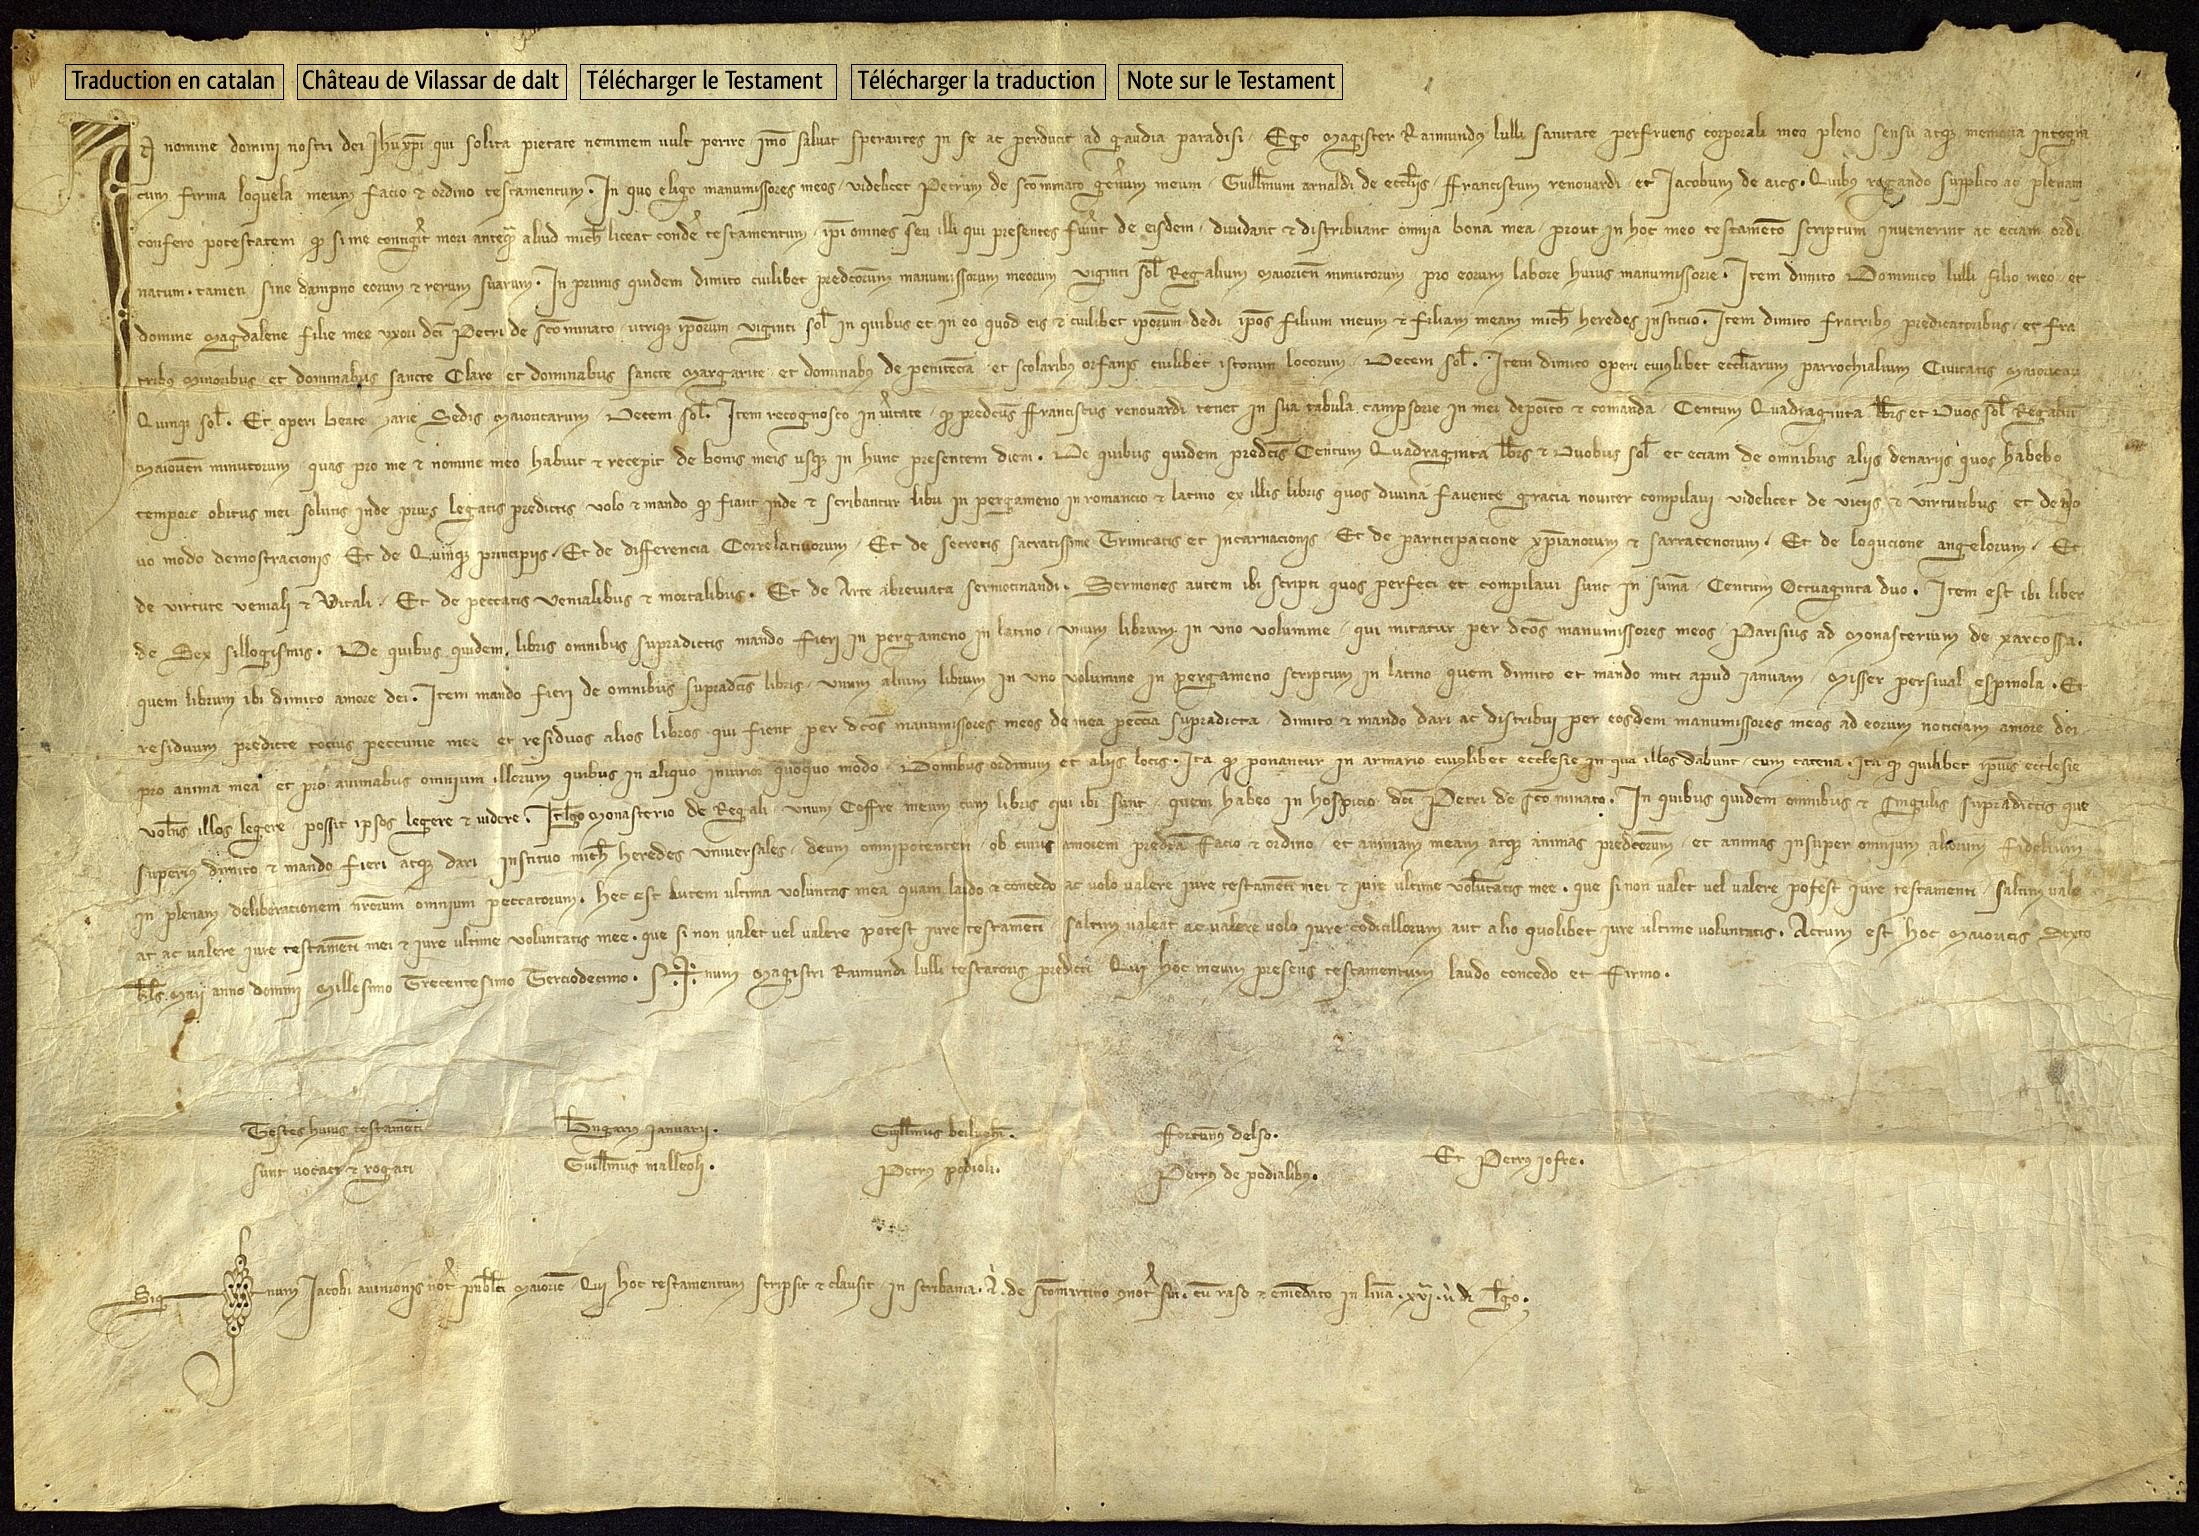 Traduction en catalan
Château de Vilassar de dalt
Télécharger le Testament
Télécharger la traduction
Note sur le Testament
In nomine domini nostri dei Jhu xpi qui solita pietate neminem vult perire imo salvat sperantes in se ac perducit ad gaudia paradisi. Ego Magister Raimundus lulli sanitate perfruens corporali meo pleno sensu atque memoria integra
cum firma loquela meum facio & ordino testamentum. In quo eligo manumissores meos videlicet Petrum de scominato generum meum Guillmum arnaldi de ecclis ffranciscum renovardi et Jacobum de aics. Quibus rogando supplico ac plenam
confero potestatem qd si me contigerit mori antequam aliud mich liceat condere testamentum ipi omnes seu illi qui presentes fuerint de eisdem dividant & distribuant omnia bona mea prout in hoc meo testamento scriptum invenerint ac eciam ordi
natum. tamen sine dampno eorum & rerum suarum. In primis quidem dimito cuilibet predcorum manumissorum meorum viginti sol Regalium maioricen minutorum pro eorum labore huius manumissorie. Item dimito Dominico lulli filio meo et
domine Magdalene filie mee uxori dci Petri de scominato utrique iporum viginti sol in quibus et in eo quod eis & cuilibet iporum dedi ipos filium meum & filiam meam mich heredes instituo. Item dimito fratribus predicatoribus et fra
tribus minoribus et dominabus sancte Clare et dominabus sancte Margarite et dominabus de penitecia et scolaribus orfanis cuilibet istorum locorum Decem sol. Item dimito operi cuiuslibet eccliarum parrochialium Civitatis maioricarum
Quinque sol. Et operi beate marie Sedis maioricarum Decem sol. Item recognosco in veritate qd predcus ffranciscus renovardi tenet in sua tabula campsorie in mei deposito & comanda Centum Quadraginta libras et Duos sol Regalium
maioricen minutorum quas pro me & nomine meo habuit & recepit de bonis meis usque in hunc presentem diem. De quibus quidem predcis Centum Quadraginta libris & Duobus sol et eciam de omnibus aliis denariis quos habebo
tempore obitus mei solutis inde prius legatis predictis volo & mando qd fiant inde & scribantur libri in pergameno in romancio & latino ex illis libris quos divina favente gracia noviter compilavi videlicet de viciis & virtutibus et de no
vo modo demostracionis Et de Quinque principiis. Et de differencia Correlativorum. Et de secretis sacratissime Trinitatis et Incarnacionis. Et de participacione xpianorum & sarracenorum. Et de loqucione angelorum. Et
de virtute veniali & Vitali. Et de peccatis Venialibus & mortalibus. Et de Arte abreviata sermocinandi. Sermones autem ibi scripti quos perfeci et compilavi sunt in suma Centum Octuaginta duo. Item est ibi liber
de Sex sillogismis. De quibus quidem libris omnibus supradictis mando fieri in pergameno in latino unum librum in uno volumine qui mitatur per dcos manumissores meos Parisius ad Monasterium de xarcossa.
quem librum ibi dimito amore dei. Item mando fieri de omnibus supradcis libris unum alium librum in uno volumine in pergameno scriptum in latino quem dimito et mando miti apud Januam Misser persival espinola. Et
residuum predicte tocius peccunie mee et residuos alios libros qui fient per dcos manumissores meos de mea peccia supradicta dimito & mando dari ac distribui per eosdem manumissores meos ad eorum noticiam amore dei
pro anima mea et pro animabus omnium illorum quibus in aliquo iniurior quoquo modo Domibus ordinum et aliis locis. Ita qd ponantur in armario cuiuslibet ecclesie in qua illos dabunt cum catena. Ita qd quilibet ipius ecclesie
volens illos legere possit ipsos legere & videre. It lego Monasterio de Regali unum Coffre meum cum libris qui ibi sunt quem habeo in hospicio dci Petri de scominato. In quibus quidem omnibus & singulis supradictis que
superius dimito & mando fieri atque dari instituo mich heredes universales deum omnipotentem ob cuius amorem predca facio & ordino et animam meam atque animas predcorum et animas insuper omnium aliorum fidelium
in plenam deliberacionem nrorum omnium peccatorum. Hec est autem ultima voluntas mea quam laudo & concedo ac volo valere iure testamenti mei & iure ultime voluntatis mee. que si non valet vel valere potest iure testamenti saltim vale
at ac valere iure testamenti mei & iure ultime voluntatis mee. que si non valet vel valere potest iure testamenti saltim valeat ac valere volo iure codicillorum aut alio quolibet iure ultime voluntatis. Actum est hoc Maioricis Sexto
kls. Maii anno domini Millesimo Trecentesimo Terciodecimo. Sig+num Magistri Raimundi lulli testatoris predicti Qui hoc meum presens testamentum laudo concedo et firmo.
Testes huius testamenti
sunt vocati & rogati
Bngarius Januarii.
Guillmus malleoli.
Guillmus
Petrus podioli.
ffortunus delso.
Petrus de podialibus.
Et Petrus jofre.
Sig num Jacobi avinionis not publici Maioric Qui hoc testamentum scripsit & clausit in scribania. de scomartino not sui. cum raso & emedato in linea .xvi. u di lego.